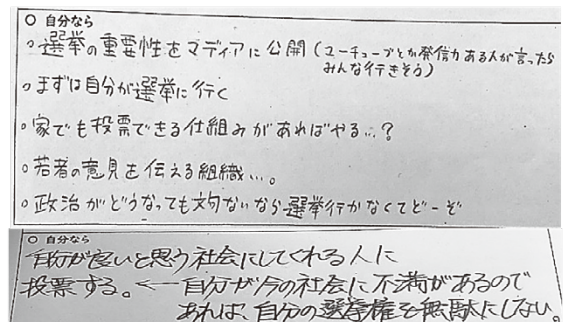 ○ 自分なら
○選挙の重要性をマディアに公開(ユーチューブとか発信力ある人が言ったら
みんな行きそう)
○まずは自分が選挙に行く
○家でも投票できる仕組みがあればやる…?
○若者の意見を伝える組織…。
○政治がどうなっても文句ないなら選挙行かなくてどーぞ
○ 自分なら
自分が良いと思う社会にしてくれる人に
投票する。←自分が今の社会に不満があるので
あれば、自分の選挙権を無駄にしない。